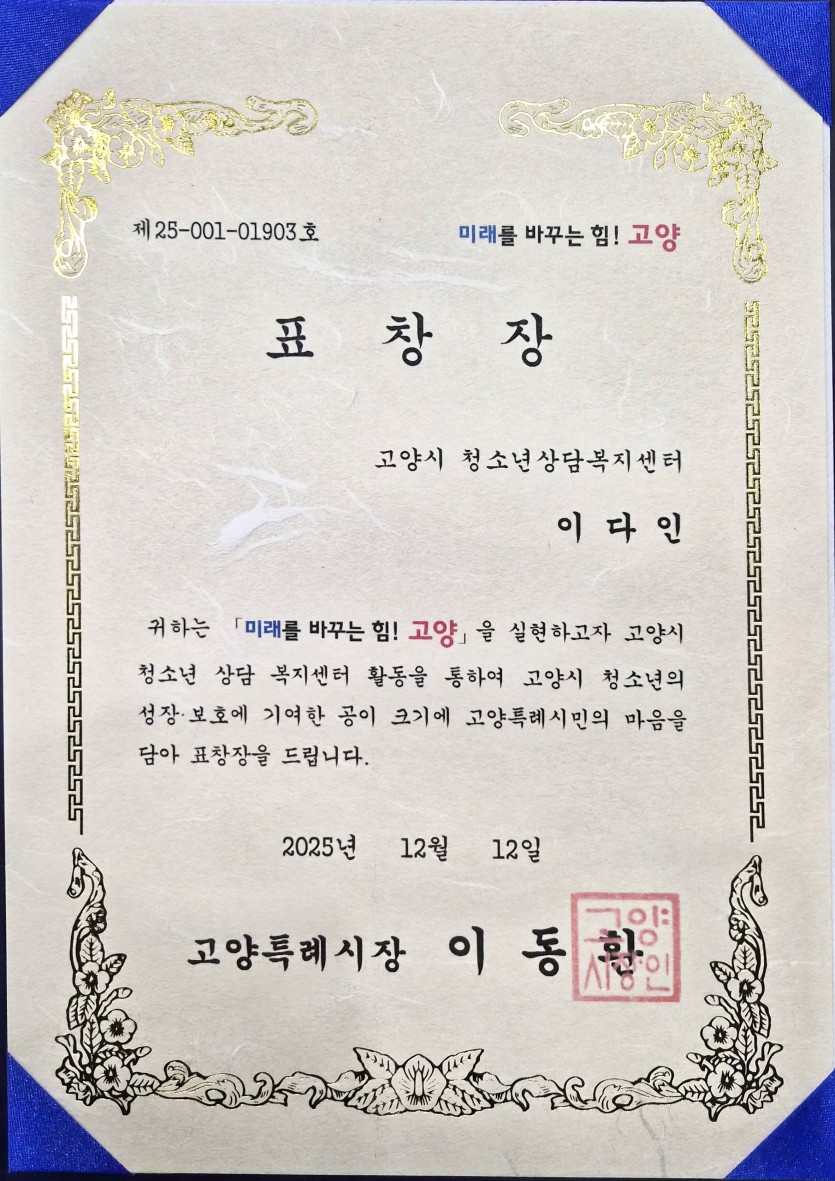 제 25-001-01903 호
미래를 바꾸는 힘! 고양
표 창 장
고양시 청소년상담복지센터
이 다 인
귀하는 「미래를 바꾸는 힘! 고양」을 실현하고자 고양시
청소년 상담 복지센터 활동을 통하여 고양시 청소년의
성장·보호에 기여한 공이 크기에 고양특례시민의 마음을
담아 표창장을 드립니다.
2025년 12월 12일
고양특례시장 이 동 환
고양
시장인